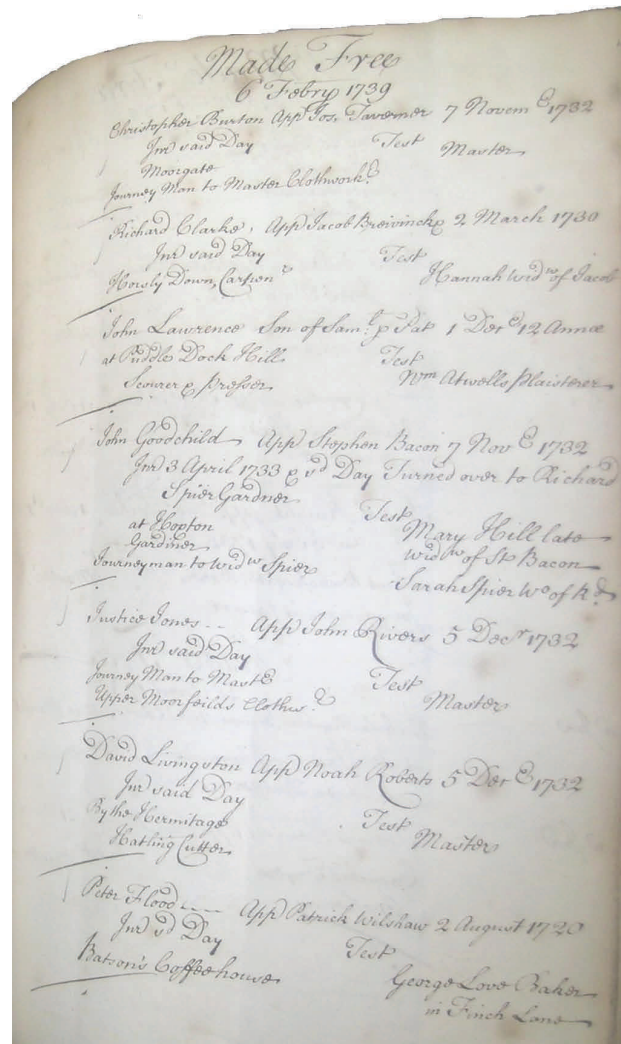 Made Free
6 Febry 1739
Christopher Burton App Jos. Taverner 7 Novem^r 1732
Inr said Day Test Master
Moorgate
Journey Man to Master Clothwork^r
Richard Clarke, App Jacob 2 March 1730
Inr said Day Test
Horsly Down, Carpen^r Hannah Wid^w of Jacob
John Lawrence Son of Sam^l p Pat 1 Dec^r 12 Annæ
at Puddle Dock Hill Test
Scourer & Presser W^m Atwells Plaisterer
John Goodchild App Stephen Bacon 7 Nov^r 1732
Inr 3 April 1733 & s^d Day Turned over to Richard
Spier Gardner
Test
at Hopton Mary Hill late
Gardiner Wid^w of St Bacon
Journeyman to Wid^w Spier
Sarah Spier W^o of R^d
Justice Jones -- App John Rivers 5 Dec^r 1732
Inr said Day
Journey Man to Mast^r Test
Upper Moorfeilds Clothw^r Master
David Livingston App Noah Roberts 5 Dec^r 1732
Inr said Day
By the Hermitage Test
Hatling Cutter Master
Peter Flood ---- App Patrick Wilshaw 2 August 1720
Inr s^d Day Test
Batson's Coffeehouse George Love Baker
in Finch Lane